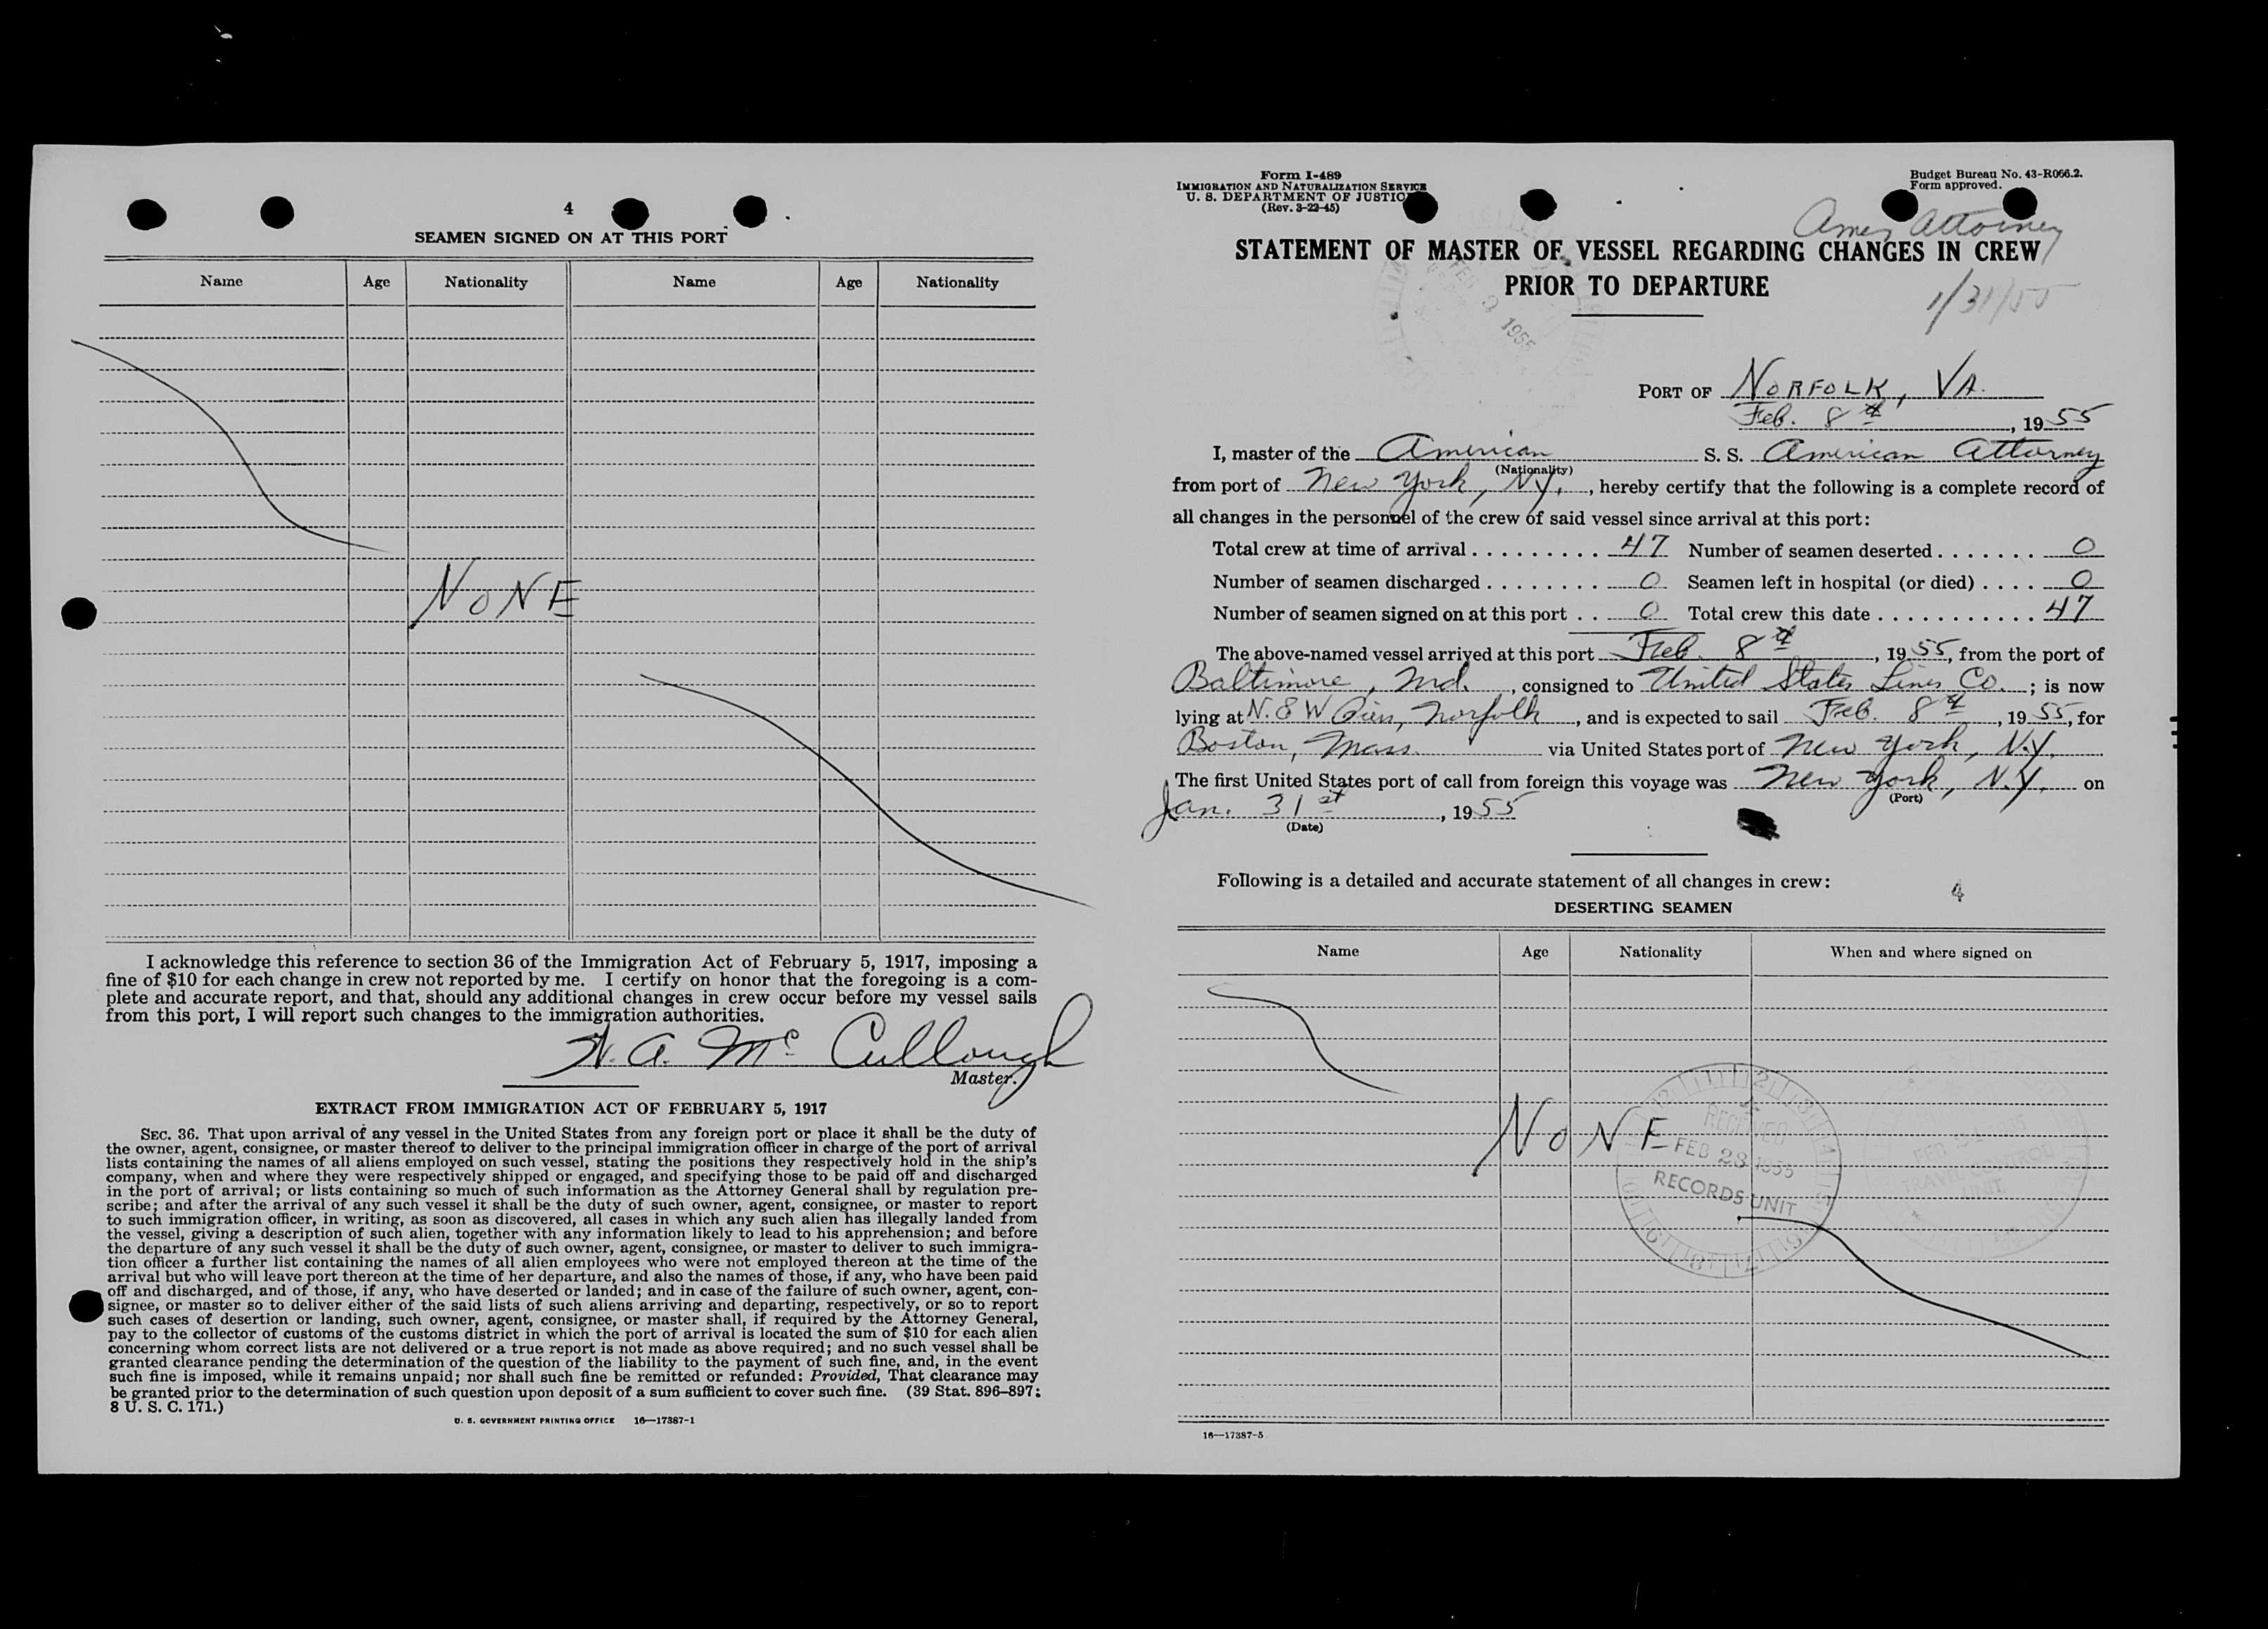 4
SEAMEN SIGNED ON AT THIS PORT
Name Age Nationality Name Age Nationality
NONE
I acknowledge this reference to section 36 of the Immigration Act of February 5, 1917, imposing a
fine of $10 for each change in crew not reported by me. I certify on honor that the foregoing is a com-
plete and accurate report, and that, should any additional changes in crew occur before my vessel sails
from this port, I will report such changes to the immigration authorities.
H. A. Mc Cullough
Master.
EXTRACT FROM IMMIGRATION ACT OF FEBRUARY 5, 1917
SEC. 36. That upon arrival of any vessel in the United States from any foreign port or place it shall be the duty of
the owner, agent, consignee, or master thereof to deliver to the principal immigration officer in charge of the port of arrival
lists containing the names of all aliens employed on such vessel, stating the positions they respectively hold in the ship's
company, when and where they were respectively shipped or engaged, and specifying those to be paid off and discharged
in the port of arrival; or lists containing so much of such information as the Attorney General shall by regulation pre-
scribe; and after the arrival of any such vessel it shall be the duty of such owner, agent, consignee, or master to report
to such immigration officer, in writing, as soon as discovered, all cases in which any such alien has illegally landed from
the vessel, giving a description of such alien, together with any information likely to lead to his apprehension; and before
the departure of any such vessel it shall be the duty of such owner, agent, consignee, or master to deliver to such immigra-
tion officer a further list containing the names of all alien employees who were not employed thereon at the time of the
arrival but who will leave port thereon at the time of her departure, and also the names of those, if any, who have been paid
off and discharged, and of those, if any, who have deserted or landed; and in case of the failure of such owner, agent, con-
signee, or master so to deliver either of the said lists of such aliens arriving and departing, respectively, or so to report
such cases of desertion or landing, such owner, agent, consignee, or master shall, if required by the Attorney General,
pay to the collector of customs of the customs district in which the port of arrival is located the sum of $10 for each alien
concerning whom correct lists are not delivered or a true report is not made as above required; and no such vessel shall be
granted clearance pending the determination of the question of the liability to the payment of such fine, and, in the event
such fine is imposed, while it remains unpaid; nor shall such fine be remitted or refunded: Provided, That clearance may
be granted prior to the determination of such question upon deposit of a sum sufficient to cover such fine. (39 Stat. 896–897;
8 U. S. C. 171.)
U. S. GOVERNMENT PRINTING OFFICE 16—17387-1
Form I-489
IMMIGRATION AND NATURALIZATION SERVICE
U. S. DEPARTMENT OF JUSTICE
(Rev. 3-22-45)
Budget Bureau No. 43-R066.2.
Form approved.
Amer Attorney
STATEMENT OF MASTER OF VESSEL REGARDING CHANGES IN CREW
PRIOR TO DEPARTURE
1/31/55
FEB 1955
PORT OF NORFOLK, VA.
Feb. 8th, 1955
I, master of the American S. S. American Attorney
(Nationality)
from port of New York, N.Y., hereby certify that the following is a complete record of
all changes in the personnel of the crew of said vessel since arrival at this port:
Total crew at time of arrival . . . . . . . . . 47 Number of seamen deserted . . . . . . . 0
Number of seamen discharged . . . . . . . . 0 Seamen left in hospital (or died) . . . . 0
Number of seamen signed on at this port . . 0 Total crew this date . . . . . . . . . . . 47
The above-named vessel arrived at this port Feb. 8th, 1955, from the port of
Baltimore, Md., consigned to United States Lines Co.; is now
lying at N. & W Piers, Norfolk, and is expected to sail Feb. 8th, 1955, for
Boston, Mass. via United States port of New York, N.Y.
The first United States port of call from foreign this voyage was New York, N.Y. on
(Port)
Jan. 31st, 1955
(Date)
Following is a detailed and accurate statement of all changes in crew:
4
DESERTING SEAMEN
Name Age Nationality When and where signed on
NONE
RECEIVED
FEB 28 1955
RECORDS UNIT
TRAVEL CONTROL
UNIT
16—17387-5